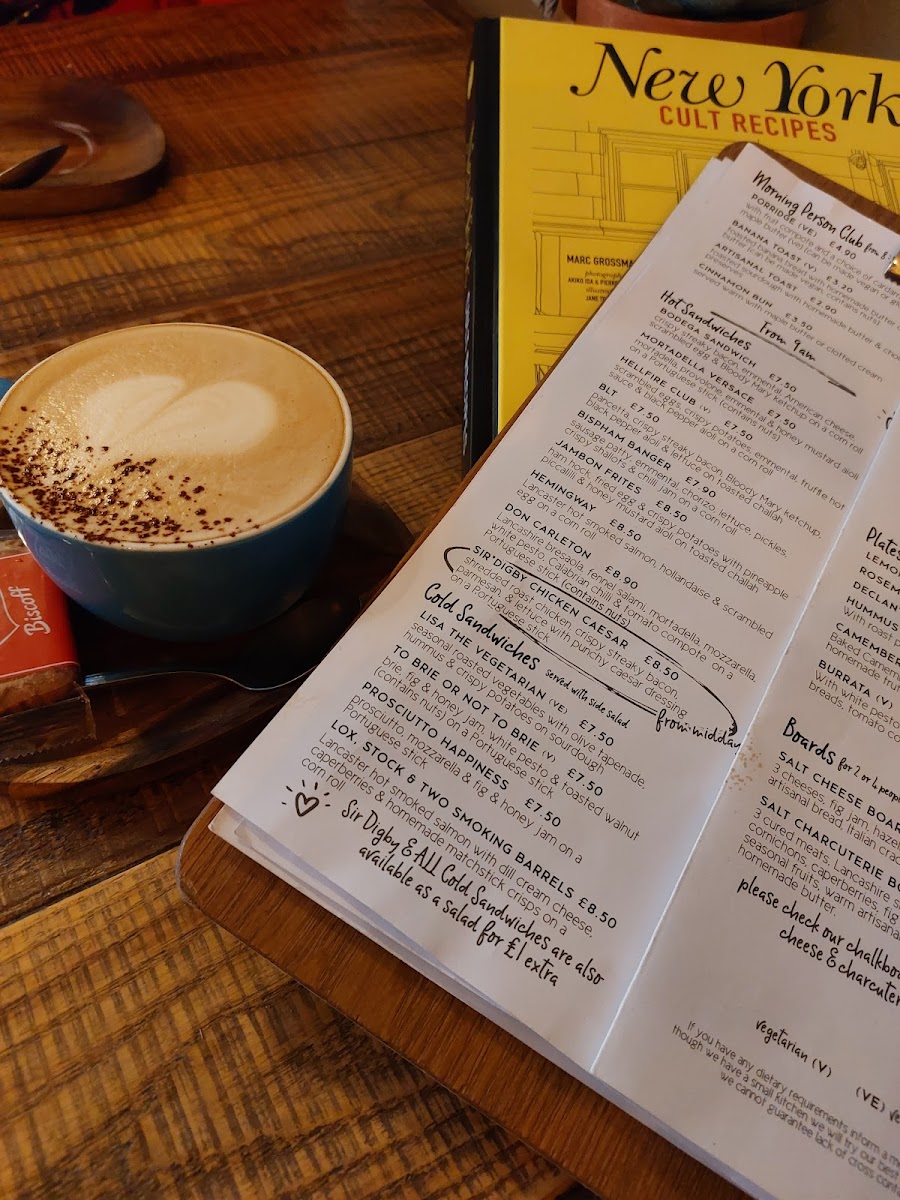 New York
CULT RECIPES
MARC GROSSMA
Biscoff
Morning Person Club from
PORRIDGE (VE) £4.90
with fruit compote and a choice of
maple butter (ve) (can be made vegan or
BANANA TOAST (V) £3.20
toasted banana bread with homemade butter
butter (can be made vegan, contains nuts)
ARTISANAL TOAST £2.90
toasted sourdough with homemade butter &
preserves
CINNAMON BUN £3.50
served warm with maple butter or clotted cream
Hot Sandwiches from 9am
BODEGA SANDWICH £7.50
crispy streaky bacon, emmental, American cheese,
scrambled egg & Bloody Mary ketchup on a corn roll
MORTADELLA VERSACE £7.50
mortadella, provolone, emmental & honey mustard aioli
on a Portuguese stick (contains nuts)
HELLFIRE CLUB (V) £7.50
scrambled eggs, crispy potatoes, emmental, truffle hot
sauce & black pepper aioli on a corn roll
BLT £7.50
pancetta, crispy streaky bacon, Bloody Mary ketchup,
black pepper aioli & lettuce on toasted challah
BISPHAM BANGER £7.90
sausage patty, emmental, chorizo, lettuce, pickles,
crispy shallots & chilli jam on a corn roll
JAMBON FRITES £8.50
ham hock, fried egg & crispy potatoes with pineapple
piccalilli & honey mustard aioli on toasted challah
HEMINGWAY £8.50
Lancaster hot smoked salmon, hollandaise & scrambled
egg on a corn roll
DON CARLETON £8.90
Lancashire bresaola, fennel salami, mortadella, mozzarella,
white pesto, Calabrian chilli & tomato compote on a
Portuguese stick (contains nuts)
SIR DIGBY CHICKEN CAESAR £8.50
shredded roast chicken, crispy streaky bacon,
parmesan, & lettuce with punchy caesar dressing
on a Portuguese stick
Cold Sandwiches served with side salad from midday
LISA THE VEGETARIAN (VE) £7.50
seasonal roasted vegetables with olive tapenade,
hummus & crispy potatoes on sourdough
TO BRIE OR NOT TO BRIE (V) £7.50
brie, fig & honey jam, white pesto & toasted walnut
(contains nuts) on a Portuguese stick
PROSCIUTTO HAPPINESS £7.50
prosciutto, mozzarella & fig & honey jam on a
Portuguese stick
LOX, STOCK & TWO SMOKING BARRELS £8.50
Lancaster hot smoked salmon with dill cream cheese,
caperberries & homemade matchstick crisps on a
corn roll
Sir Digby & ALL Cold Sandwiches are also
available as a salad for £1 extra
Plates
LEMO
ROSEM
DECLAN
HUMMUS
With roast
CAMEMBER
Baked camem
homemade frui
BURRATA (V)
With white pesto
breads, tomato co
Boards for 2 or 4 people
SALT CHEESE BOAR
3 cheeses, fig jam, haze
artisanal bread, Italian crac
SALT CHARCUTERIE BO
3 cured meats, Lancashire s
cornichons, caperberries, fig
seasonal fruits, warm artisana
homemade butter.
please check our chalkboa
cheese & charcuter
vegetarian (V) (VE) ve
If you have any dietary requirements inform a m
though we have a small kitchen we will try our best
we cannot guarantee lack of cross cont